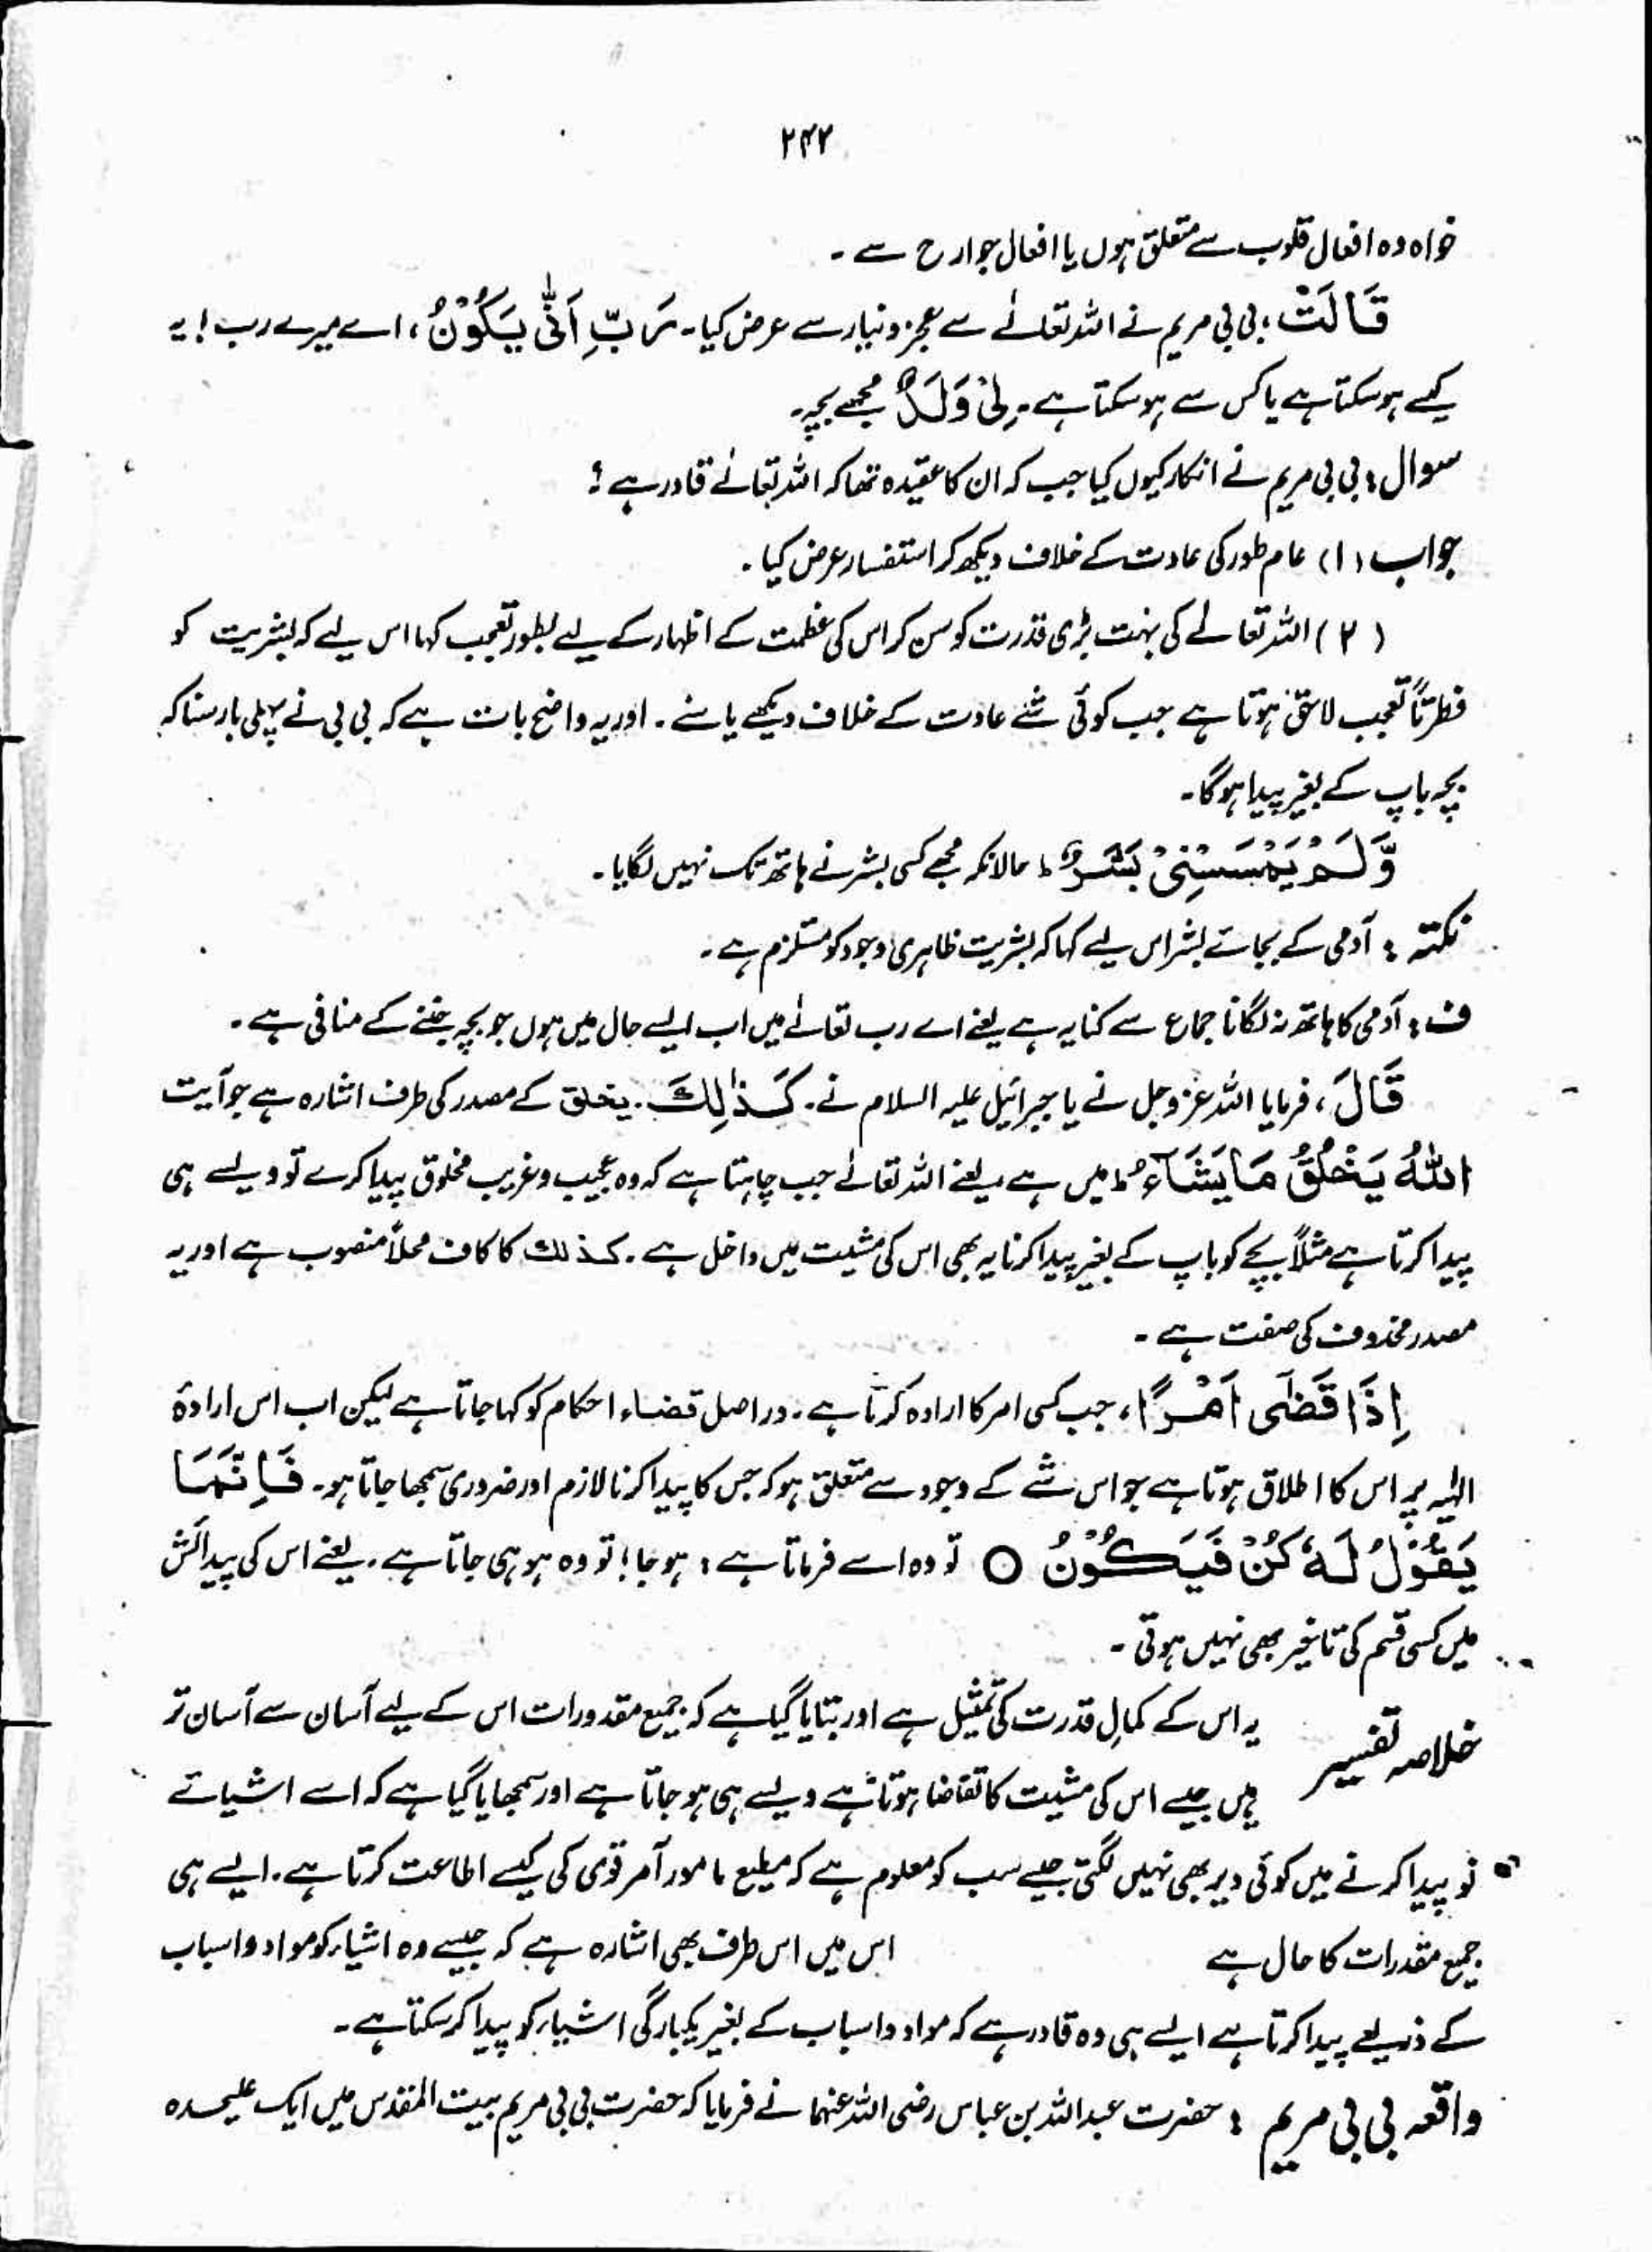 ۲۴۲
خواہ وہ افعال قلوب سے متعلق ہوں یا افعال جوارح سے ۔
قَالَتْ ؛ بی بی مریم نے اللہ تعالےٰ سے عجز و نیاز سے عرض کیا ۔ رَبِّ اَنّٰی یَکُوْنُ ، اے میرے رب ! یہ
کیسے ہو سکتا ہے یا کس سے ہو سکتا ہے ۔ لِیْ وَلَدٌ مجھے بچہ ۔
سوال : بی بی مریم نے انکار کیوں کیا جب کہ ان کا عقیدہ تھا کہ اللہ تعالےٰ قادر ہے ؟
جواب (۱) عام طور کی عادت کے خلاف دیکھ کر استفسار عرض کیا ۔
(۲) اللہ تعالےٰ کی بہت بڑی قدرت کو سن کر اس کی عظمت کے اظہار کے لیے بطور تعجب کہا اس لیے کہ بشریت کو
فطرتاً تعجب لاحق ہوتا ہے جب کوئی شے عادت کے خلاف دیکھے یا سنے ۔ اور یہ واضح بات ہے کہ بی بی نے پہلی بار سنا کہ
بچہ باپ کے بغیر پیدا ہوگا ۔
وَّلَمْ یَمْسَسْنِیْ بَشَرٌ ؕ حالانکہ مجھے کسی بشر نے ہاتھ تک نہیں لگایا ۔
نکتہ : آدمی کے بجائے بشر اس لیے کہا کہ بشریت ظاہری وجود کو مستلزم ہے ۔
ف : آدمی کا ہاتھ نہ لگانا جماع سے کنایہ ہے یعنے اے رب تعالےٰ میں اب ایسے حال میں ہوں جو بچہ جننے کے منافی ہے ۔
قَالَ ، فرمایا اللہ عزوجل نے یا جبرائیل علیہ السلام نے ۔ کَذٰلِکَ ۔ یخلق کے مصدر کی طرف اشارہ ہے جو آیت
اللّٰہُ یَخْلُقُ مَا یَشَآءُ ؕ میں ہے یعنے اللہ تعالےٰ جب چاہتا ہے کہ وہ عجیب و غریب مخلوق پیدا کرے تو ویسے ہی
پیدا کرتا ہے مثلاً بچے کو باپ کے بغیر پیدا کرنا یہ بھی اس کی مشیت میں داخل ہے ۔ کذلک کا کاف محلاً منصوب ہے اور یہ
مصدر محذوف کی صفت ہے ۔
اِذَا قَضٰی اَمْرًا ، جب کسی امر کا ارادہ کرتا ہے ۔ دراصل قضاء احکام کو کہا جاتا ہے لیکن اب اس ارادۂ
الٰہیہ پر اس کا اطلاق ہوتا ہے جو اس شے کے وجود سے متعلق ہو کہ جس کا پیدا کرنا لازم اور ضروری سمجھا جاتا ہو ۔ فَاِنَّمَا
یَقُوْلُ لَہٗ کُنْ فَیَکُوْنُ ○ تو وہ اسے فرماتا ہے : ہو جا ! تو وہ ہو ہی جاتا ہے ۔ یعنے اس کی پیدائش
میں کسی قسم کی تاخیر بھی نہیں ہوتی ۔
خلاصہ تفسیر یہ اس کے کمالِ قدرت کی تمثیل ہے اور بتایا گیا ہے کہ جمیع مقدورات اس کے لیے آسان سے آسان تر
ہیں جیسے اس کی مشیت کا تقاضا ہوتا ہے ویسے ہی ہو جاتا ہے اور سمجھایا گیا ہے کہ اسے اشیائے
نو پیدا کرنے میں کوئی دیر بھی نہیں لگتی جیسے سب کو معلوم ہے کہ مطیع مامور آمر قوی کی کیسے اطاعت کرتا ہے ۔ ایسے ہی
جمیع مقدرات کا حال ہے اس میں اس طرف بھی اشارہ ہے کہ جیسے وہ اشیاء کو مواد و اسباب
کے ذریعے پیدا کرتا ہے ایسے ہی وہ قادر ہے کہ مواد و اسباب کے بغیر یکبارگی اشیاء کو پیدا کر سکتا ہے ۔
واقعہ بی بی مریم : حضرت عبداللہ بن عباس رضی اللہ عنہما نے فرمایا کہ حضرت بی بی مریم بیت المقدس میں ایک علیحدہ